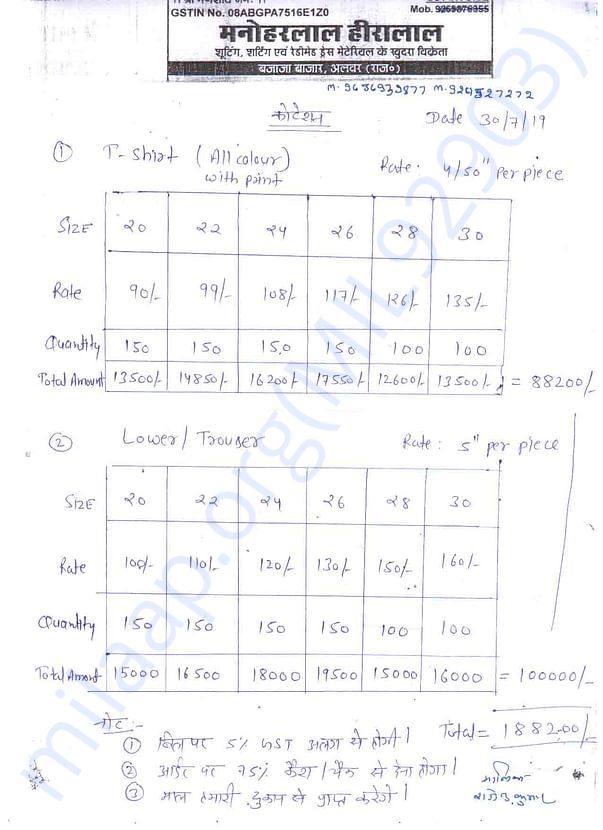 GSTIN No. 08ABGPA7516E1Z0
Mob. 9269876355
मनोहरलाल हीरालाल
शूटिंग, शर्टिंग एवं रेडीमेड ड्रेस मेटेरियल के खुदरा विक्रेता
बजाजा बाजार, अलवर (राज०)
कोटेशन
Date 30/7/19
① T-Shirt (All colour) with print
Rate. 4/50" Per piece
SIZE 20 22 24 26 28 30
Rate 90/- 99/- 108/- 117/- 126/- 135/-
Quantity 150 150 150 150 100 100
Total Amount 13500/- 14850/- 16200/- 17550/- 12600/- 13500/- = 88200/-
② Lower/Trouser
Rate: 5" per piece
SIZE 20 22 24 26 28 30
Rate 100/- 110/- 120/- 130/- 150/- 160/-
Quantity 150 150 150 150 100 100
Total Amont 15000 16500 18000 19500 15000 16000 = 100000/-
नोट:-
Total = 188200/-
① बिल पर 5% GST अलग से होगी।
② आर्डर पर 75% कैश/चैक से देना होगा।
③ माल हमारी दुकान से प्राप्त करेंगे।
milaap.org(MIL92903)